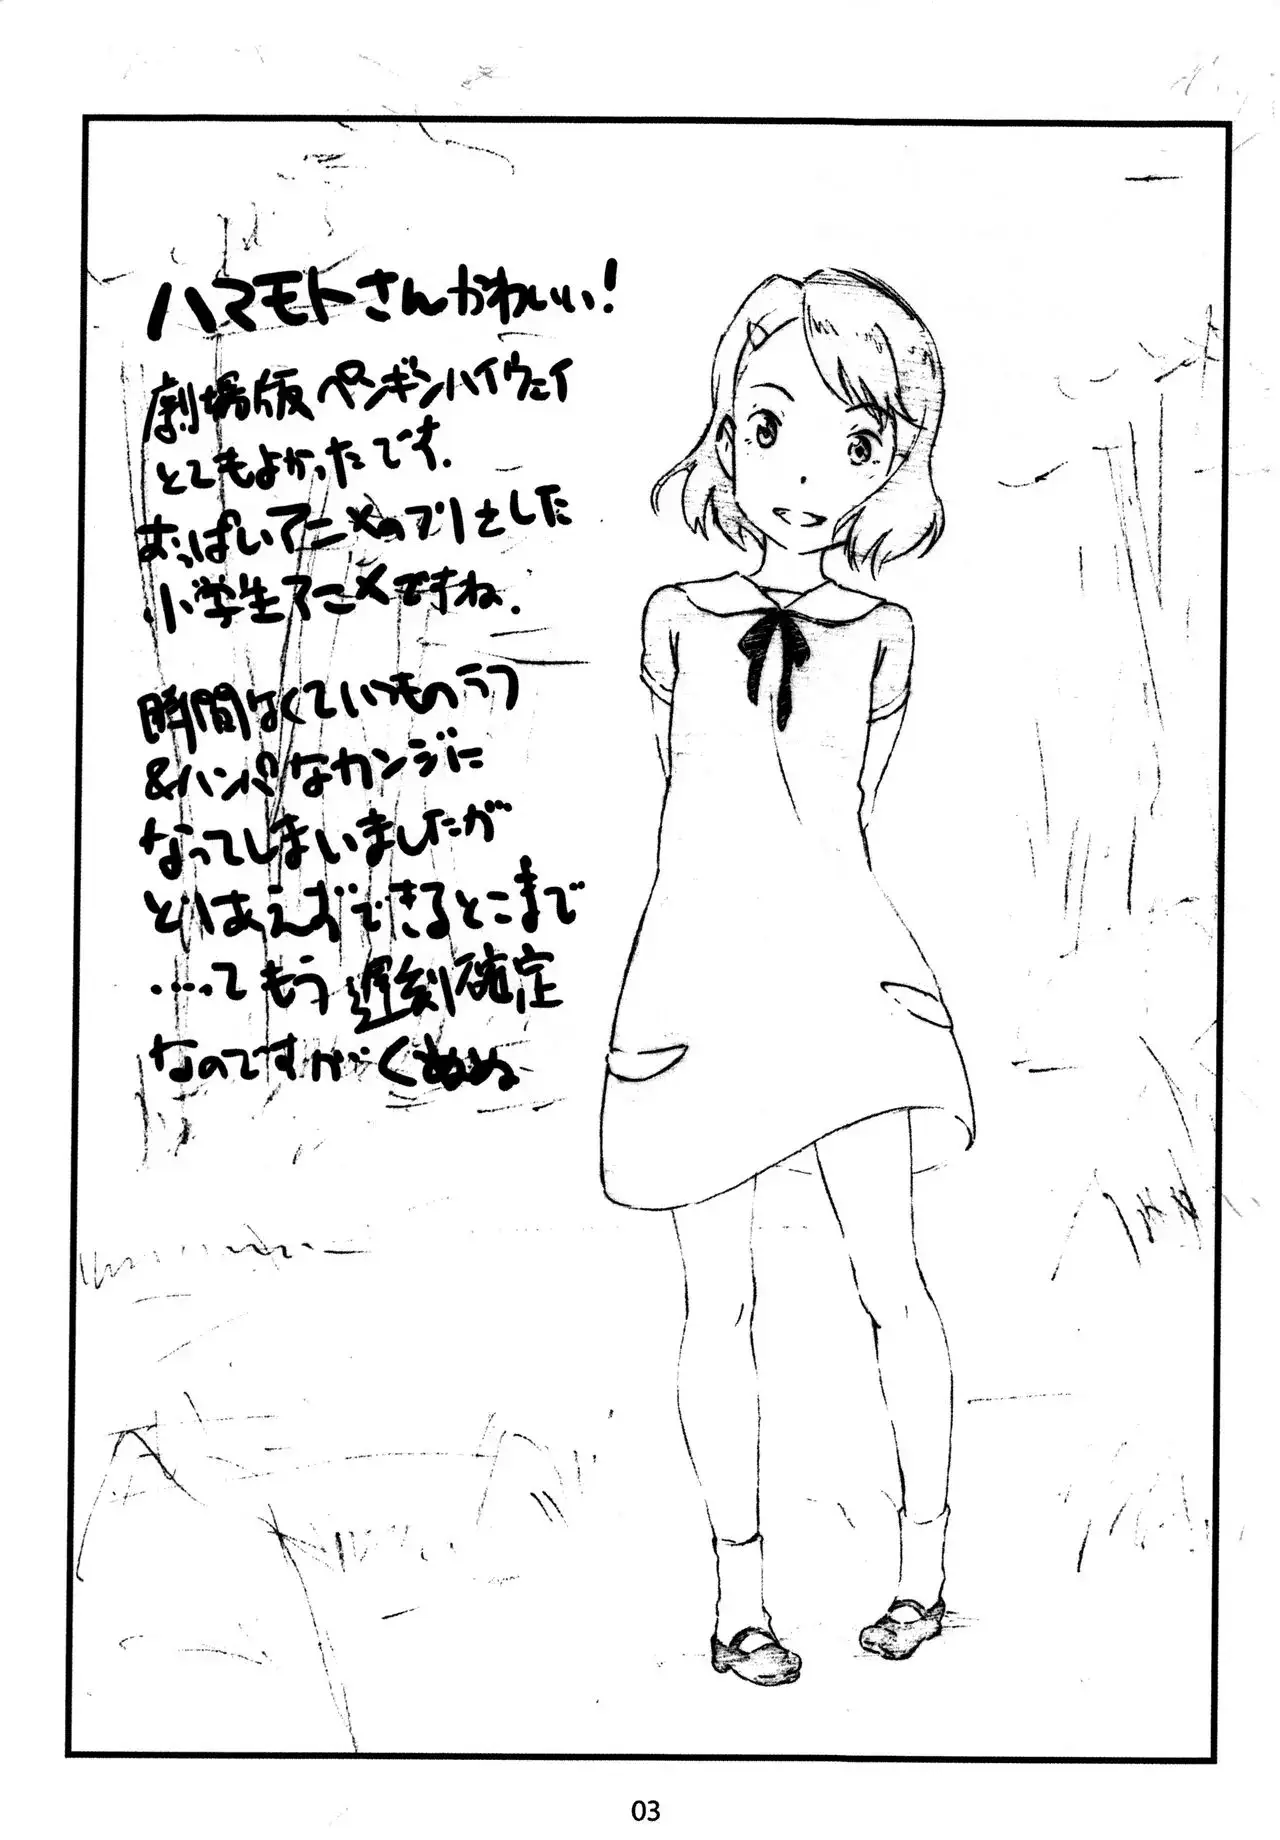 ハマモトさんかわいい!
劇場版ペンギンハイウェイ
とてもよかったです.
おっぱいアニメのフリをした
小学生アニメですね.
時間なくていつものラフ
&ハンパなカンジに
なってしまいましたが
とりあえずできるとこまで
.....てもう遅刻確定
なのですがくぬぬぬ
03